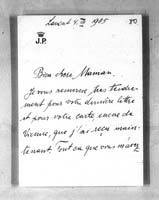 Lacroma 4. III 1905
80
J.P.
Bien chère Maman.
Je vous remercie très tendre-
ment pour votre dernière lettre
et pour votre carte encore de
Vienne, que j'ai reçu main-
tenant. Tout ce que vous m'avez